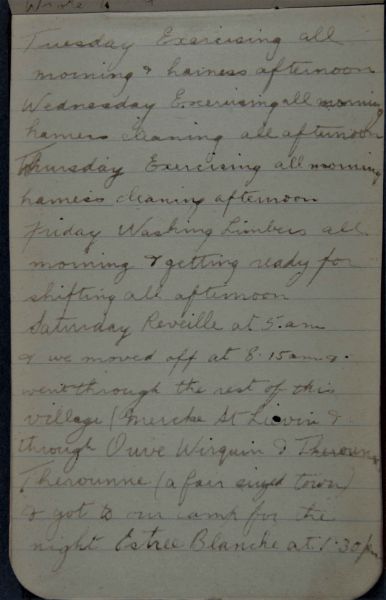 Tuesday Exercising all
morning & harness afternoon
Wednesday Excerusing all morning
harness cleaning all afternoon
Thursday Exercising all morning
harness cleaning afternoon
Friday Washing Limbers all
morning & getting ready for
shifting all afternoon
Saturday Reveille at 5.am
& we moved off at 8.15am &
went through the rest of this
village (Mercke St Lievin &
through Ouve Wirquin &
Therounne (a fair sized town)
& got to our camp for the
night Estree Blanche at 1.30pm